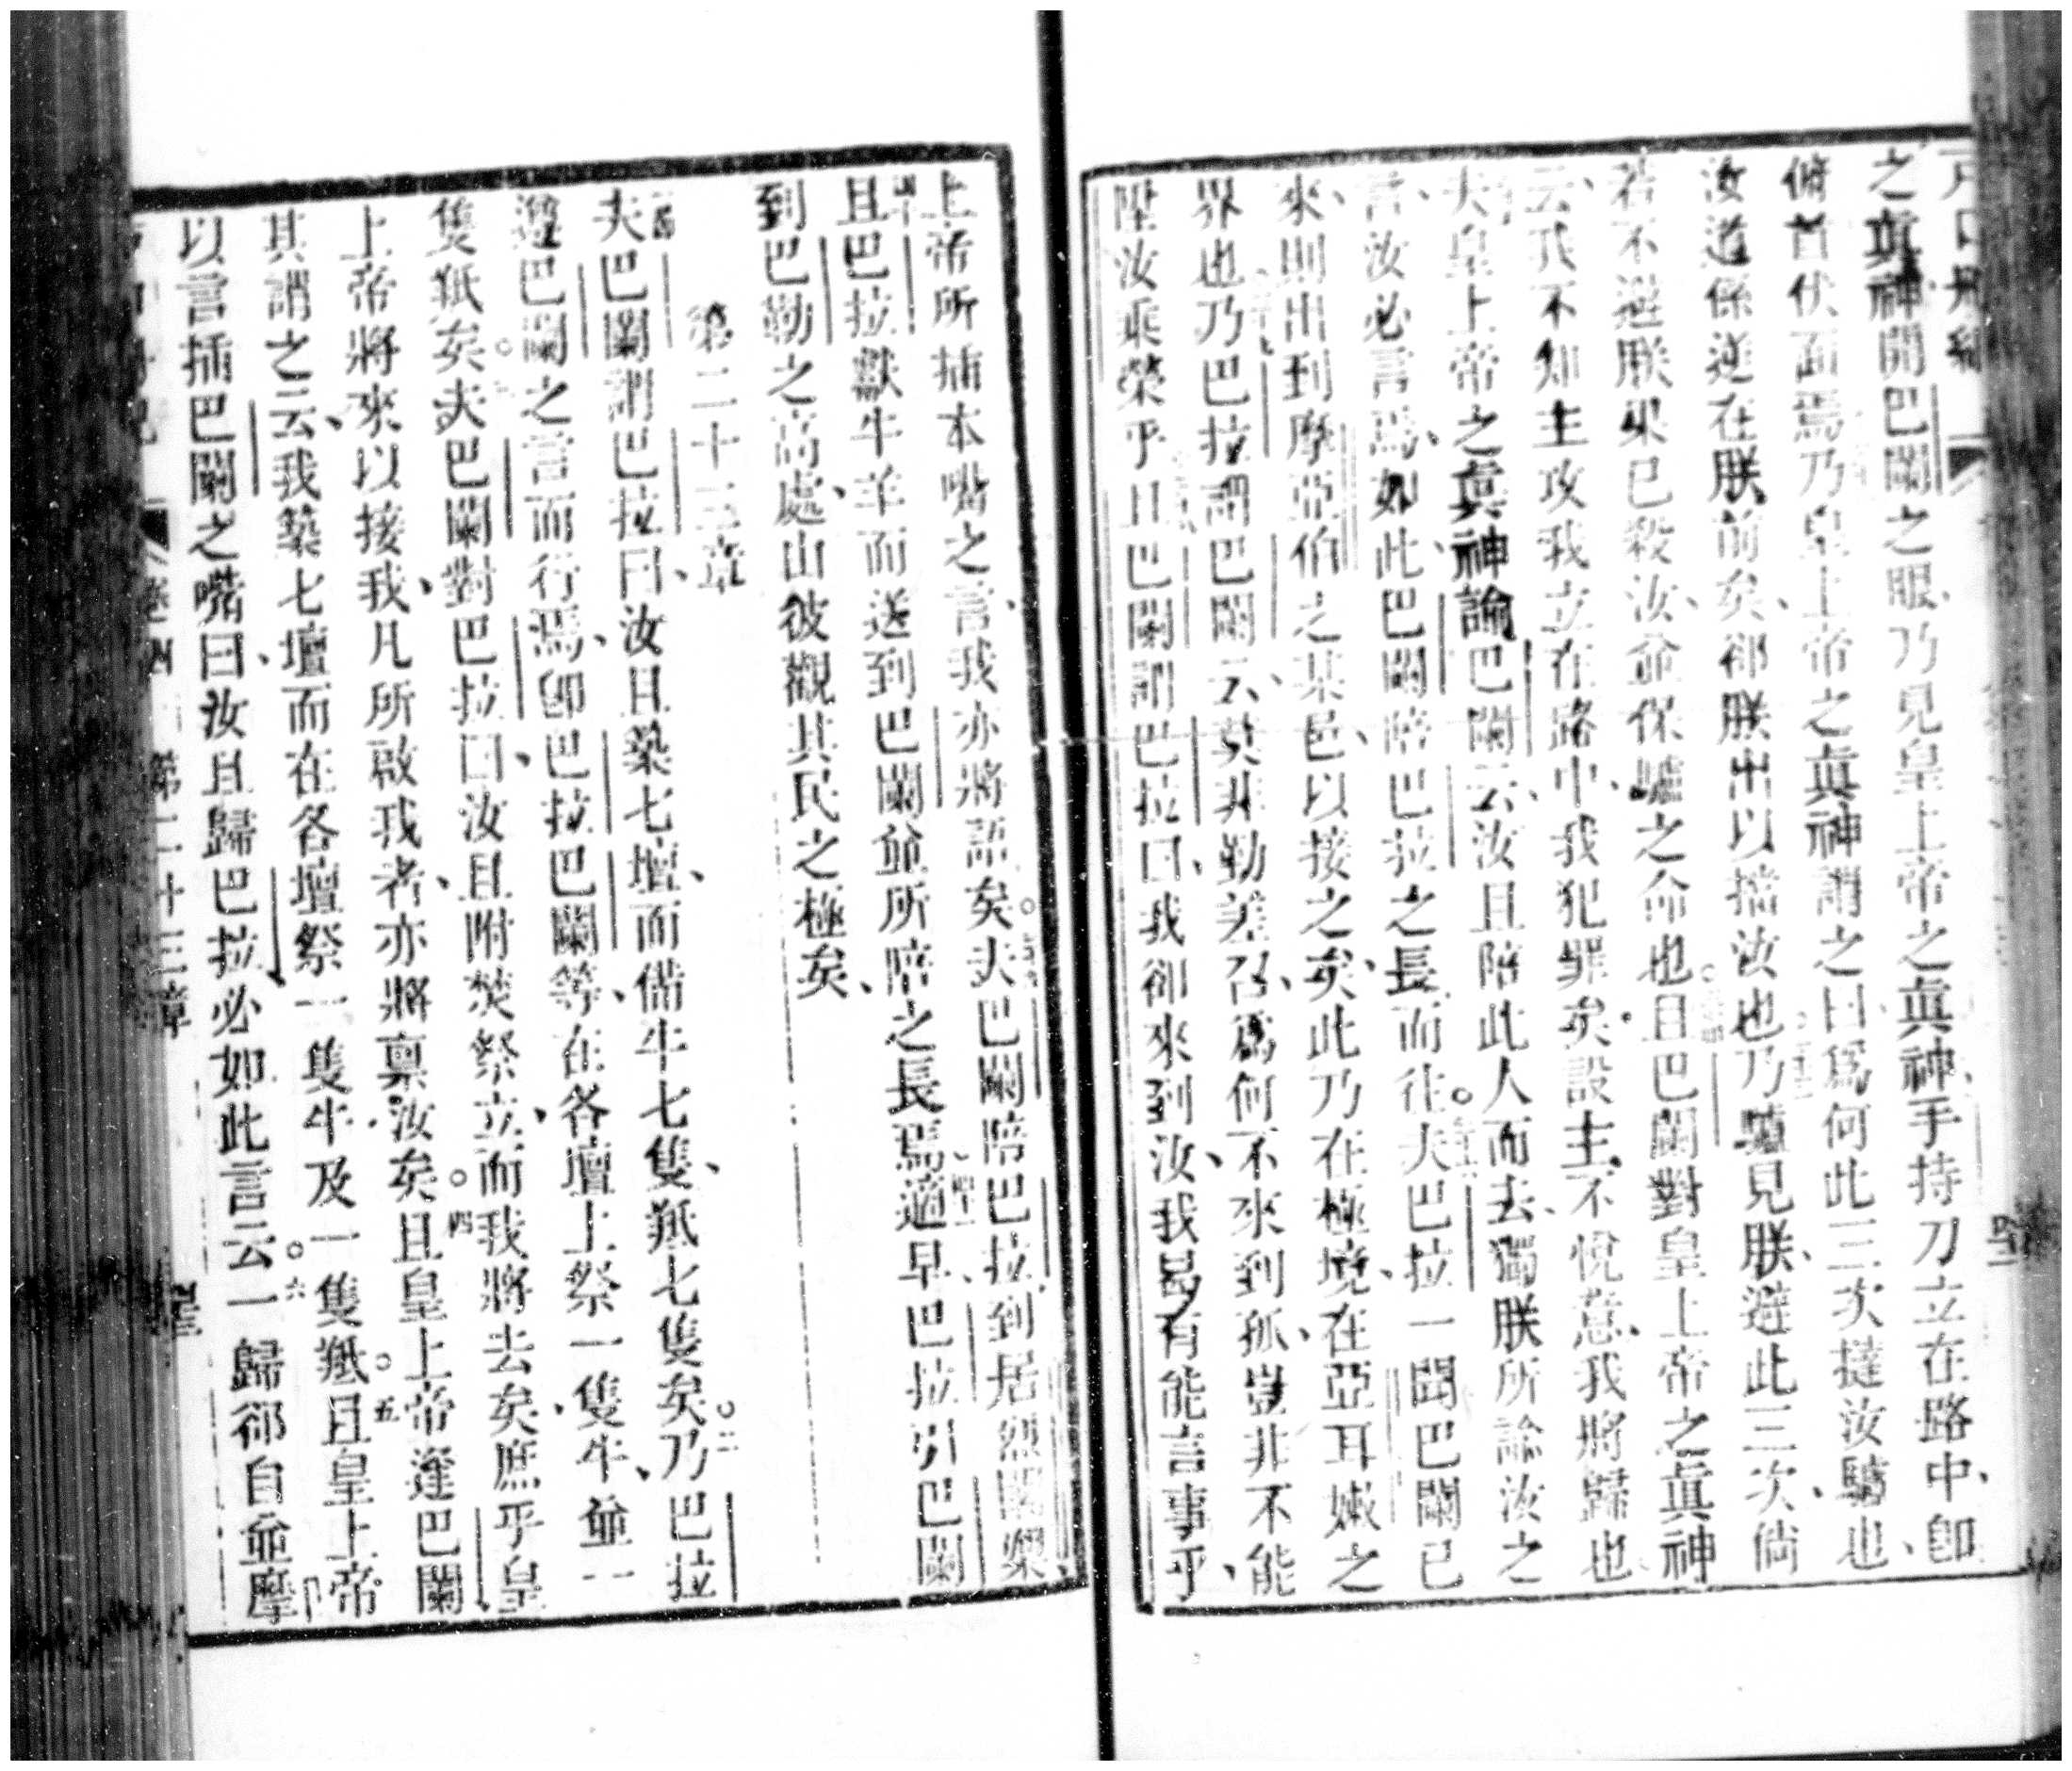 戶口冊紀
之眞神開巴闌之眼乃見皇上帝之眞神手持刀立在路中、卽
俯首伏面焉乃皇上帝之眞神謂之曰爲何此三次撻汝驢也、
汝道係逆在朕前矣、郤朕出以擋汝也乃驢見朕、避此三次、倘
若不避朕果已殺汝、並保驢之命也。且巴闌對皇上帝之眞神
云、我不知主攻我立在路中、我犯罪矣。設主不悅意、我將歸也
夫皇上帝之眞神諭巴闌云、汝且陪此人而去、獨朕所諭汝之
言、汝必言焉、如此巴闌陪巴拉之長而往。夫巴拉一聞巴闌已
來、則出到摩亞伯之某邑、以接之矣、此乃在極境、在亞耳嫩之
界也乃巴拉謂巴闌云、莫非勤差召爲何不來到孤、豈非不能
陞汝乘榮乎且巴闌謂巴拉曰、我郤來到汝、我曷有能言事乎、
上帝所插本嘴之言、我亦將語矣。夫巴闌陪巴拉到居烈
且巴拉獻牛羊而送到巴闌並所陪之長焉適早、巴拉引巴闌
到巴勒之高處、山彼觀其民之極矣、
第二十三章
夫巴闌謂巴拉曰、汝且築七壇、而備牛七隻、羝七隻矣。二乃巴拉
遵巴闌之言而行焉、卽巴拉巴闌等、在各壇上祭一隻牛、並一
隻羝矣。夫巴闌對巴拉曰、汝且附焚祭立、而我將去矣、庶乎皇
上帝將來以接我、凡所啟我者、亦將稟汝矣。四且皇上帝逢巴闌
其謂之云、我築七壇而在各壇祭一隻牛及一隻羝。五且皇上帝
以言插巴闌之嘴曰、汝且歸巴拉必如此言云。六一歸郤自並摩
卷四 第二十三章